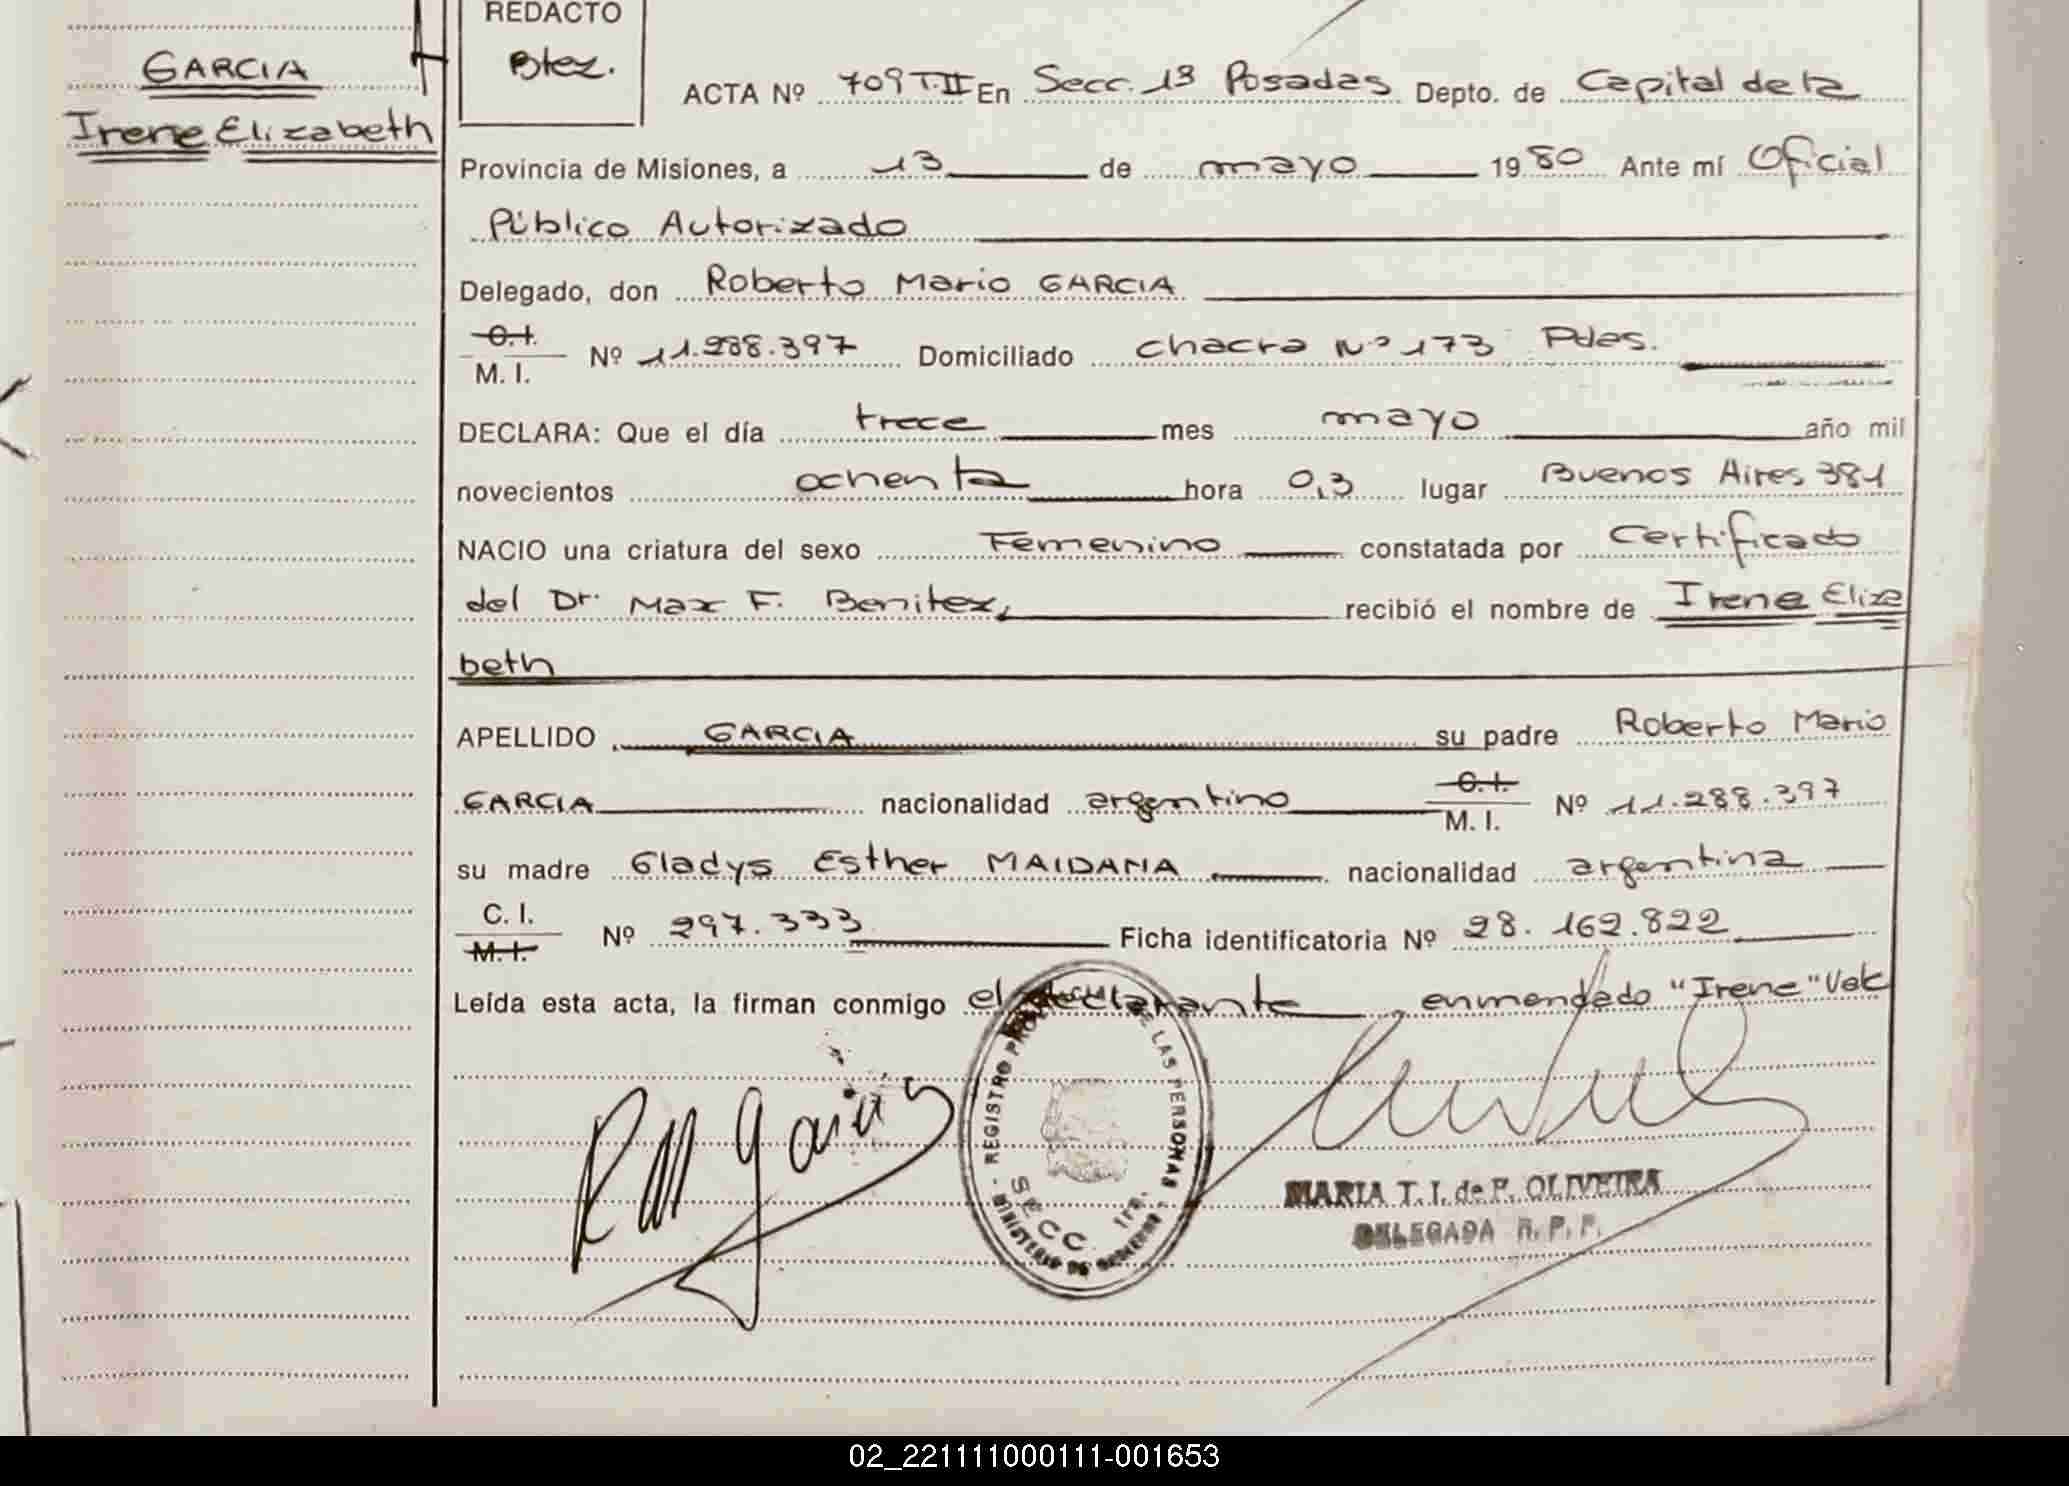 GARCIA
Irene Elizabeth
REDACTO
Btez.
ACTA Nº 709 T.II En Secc. 1ª Posadas Depto. de Capital de la
Provincia de Misiones, a 13 de mayo 1980 Ante mí Oficial
Público Autorizado
Delegado, don Roberto Mario GARCIA
C.I.
M. I. Nº 11.288.397 Domiciliado chacra Nº 173 Pdas.
DECLARA: Que el día trece mes mayo año mil
novecientos ochenta hora 0,3 lugar Buenos Aires 381
NACIO una criatura del sexo Femenino constatada por Certificado
del Dr. Max F. Benitez, recibió el nombre de Irene Eliza
beth
APELLIDO GARCIA su padre Roberto Mario
GARCIA nacionalidad argentino C.I. M. I. Nº 11.288.397
su madre Gladys Esther MAIDANA nacionalidad argentina
C. I.
M.I. Nº 297.333 Ficha identificatoria Nº 28.162.822
Leída esta acta, la firman conmigo el declarante enmendado "Irene" Vale
RM Garcia
REGISTRO PROVINCIAL DE LAS PERSONAS
SECC. 1ra.
MINISTERIO DE GOBIERNO
MARIA T. I. de F. OLIVEIRA
DELEGADA R. P. P.
02_221111000111-001653